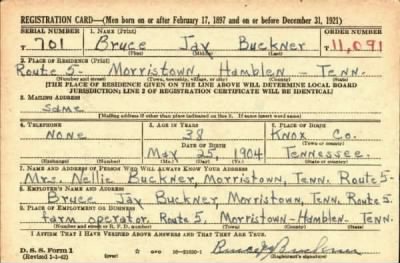 REGISTRATION CARD—(Men born on or after February 17, 1897 and on or before December 31, 1921)
SERIAL NUMBER 1. NAME (Print) ORDER NUMBER
T 701 Bruce Jay Buckner 11,091
(First) (Middle) (Last)
2. PLACE OF RESIDENCE (Print)
Route 5 - Morristown, Hamblen - Tenn.
(Number and street) (Town, township, village, or city) (County) (State)
[THE PLACE OF RESIDENCE GIVEN ON THE LINE ABOVE WILL DETERMINE LOCAL BOARD
JURISDICTION; LINE 2 OF REGISTRATION CERTIFICATE WILL BE IDENTICAL]
3. MAILING ADDRESS
Same
[Mailing address if other than place indicated on line 2. If same insert word same]
4. TELEPHONE 5. AGE IN YEARS 6. PLACE OF BIRTH
None 38 Knox Co.
DATE OF BIRTH (Town or county)
May 25, 1904 Tennessee.
(Exchange) (Number) (Mo.) (Day) (Yr.) (State or country)
7. NAME AND ADDRESS OF PERSON WHO WILL ALWAYS KNOW YOUR ADDRESS
Mrs. Nellie Buckner, Morristown, Tenn. Route 5-
8. EMPLOYER'S NAME AND ADDRESS
Bruce Jay Buckner, Morristown, Tenn. Route 5.
9. PLACE OF EMPLOYMENT OR BUSINESS
farm operator. Route 5, Morristown - Hamblen - Tenn.
(Number and street or R. F. D. number) (Town) (County) (State)
I AFFIRM THAT I HAVE VERIFIED ABOVE ANSWERS AND THAT THEY ARE TRUE.
D. S. S. Form 1
(Revised 1-1-42) (over) Bruce J Buckner
(Registrant's signature)